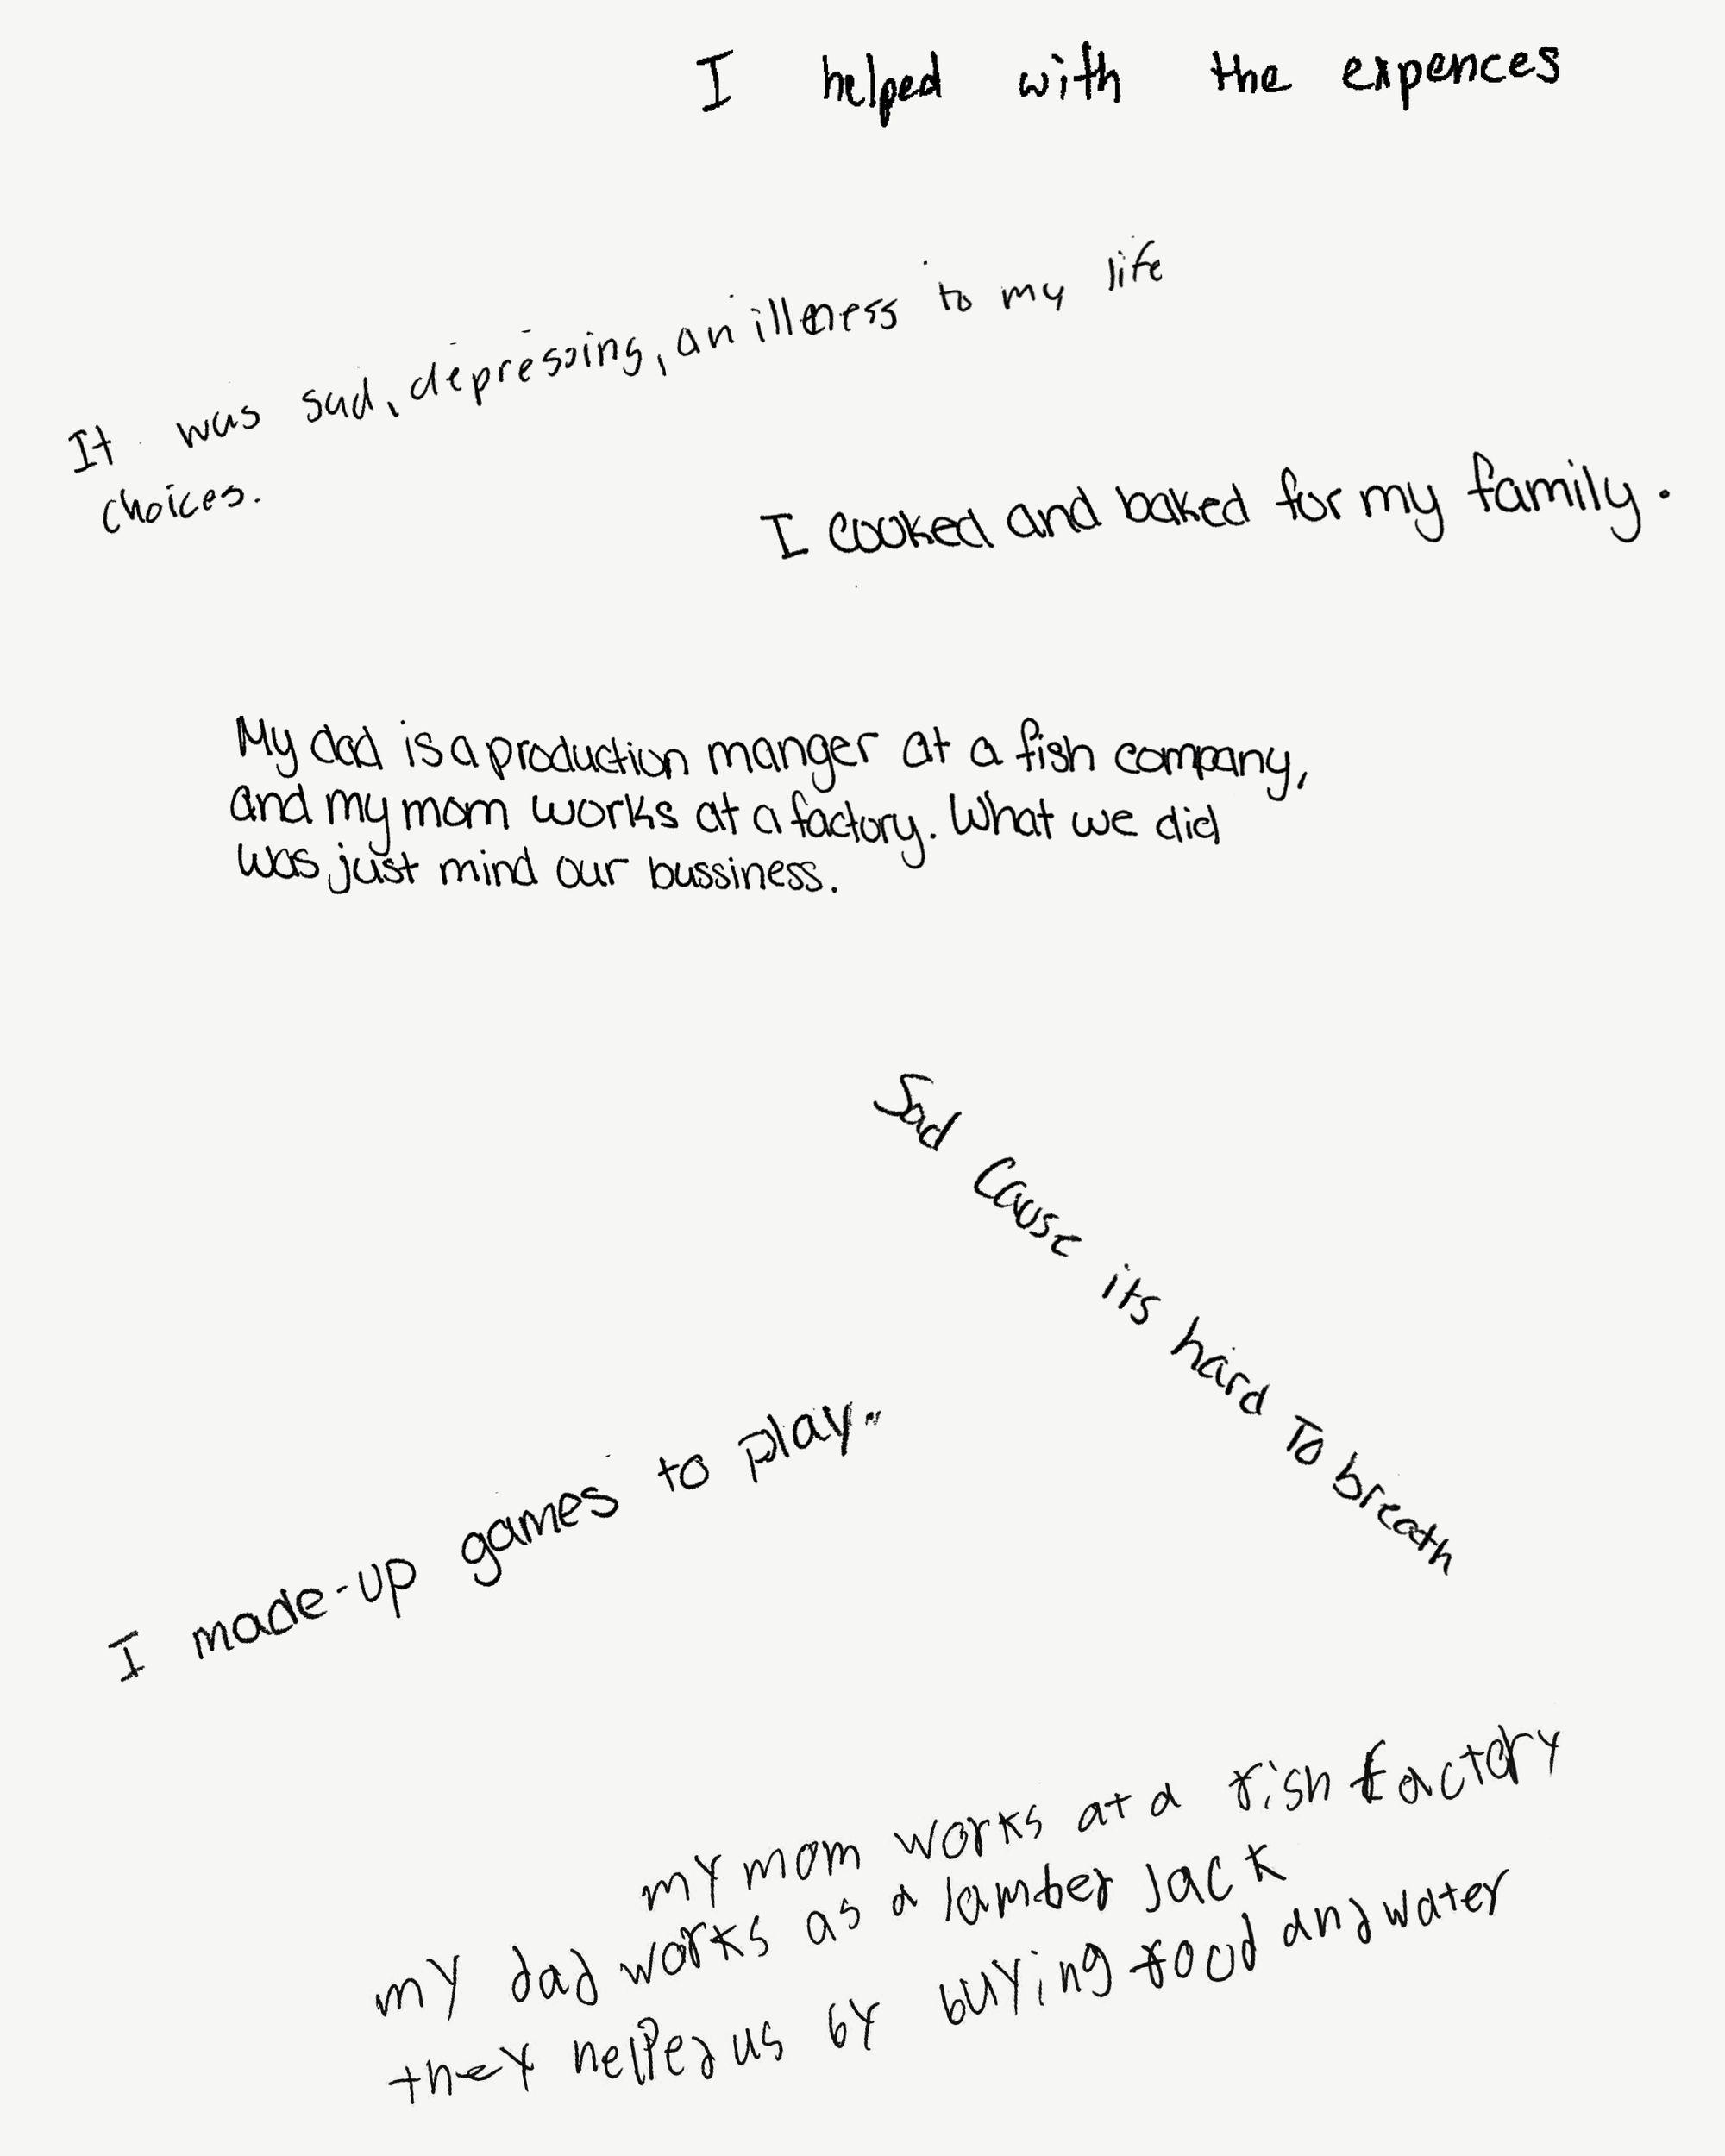 I helped with the expences
It was sad, depressing, an illness to my life
choices.
I cooked and baked for my family.
My dad is a production manger at a fish company,
and my mom works at a factory. What we did
was just mind our bussiness.
Sad Cause its hard To breath
I made-up games to play..
my mom works at a fish factory
my dad works as a lamber jack
they helped us by buying food and water